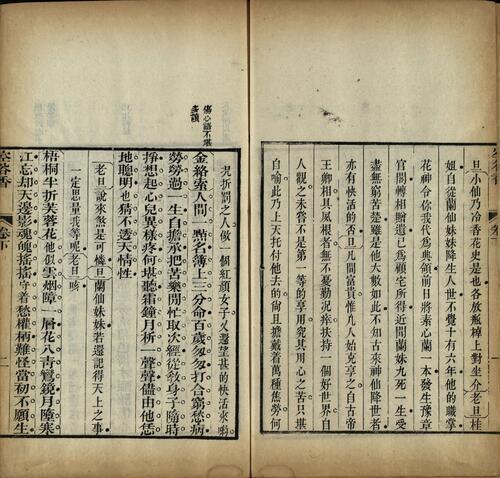 旦小仙乃冷香花史是也各放瓶樽上對坐介老旦桂
姐自從蘭仙妹妹降生人世不覺十有六年他的職掌
花神令你我代為典領前日將素心蘭一本發生豫章
官閣轉相贈遺已為顧宅所得近聞蘭妹九死一生受
盡無窮苦楚雖是他大數如此不知古來神仙降世者
亦有快活的否旦凡間富貴惟几人始克享之自古帝
王卿相具夙根者無不憂勤況疾扶持一個好世界自
人觀之未嘗不是第一等的享用究其用心之苦只堪
自喻此乃上天托付他去的尚且擔戴着萬種焦勞何
況折罰之人做一個紅顔女子又還望甚的快活來喲
傷心語不堪
多讀
金絡索人間一點名薄上三分命百歲匆匆打合窮愁病
勞勞過一生自擔承把苦樂閒忙取次經從教身子隨時
掙想起心兒異樣疼何堪聽霜鐘月析一聲聲儘由他恁
地聰明也猜不透天情性
老旦說來煞是可憐旦蘭仙妹妹若還記得天上之事
一定思量我等呢老旦咳
梧桐半折芙蓉花他似雲烟障一層花八青鸞鏡月墮寒
江忘却天邊影魂魄搖搖守着愁權柄難怪當初不願生
空谷香
卷下